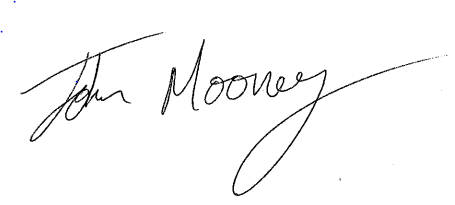 John Mooney